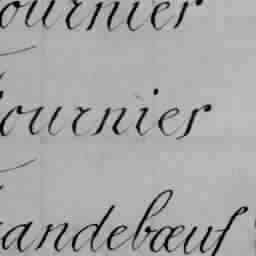 ournier
ournier
andebœuf